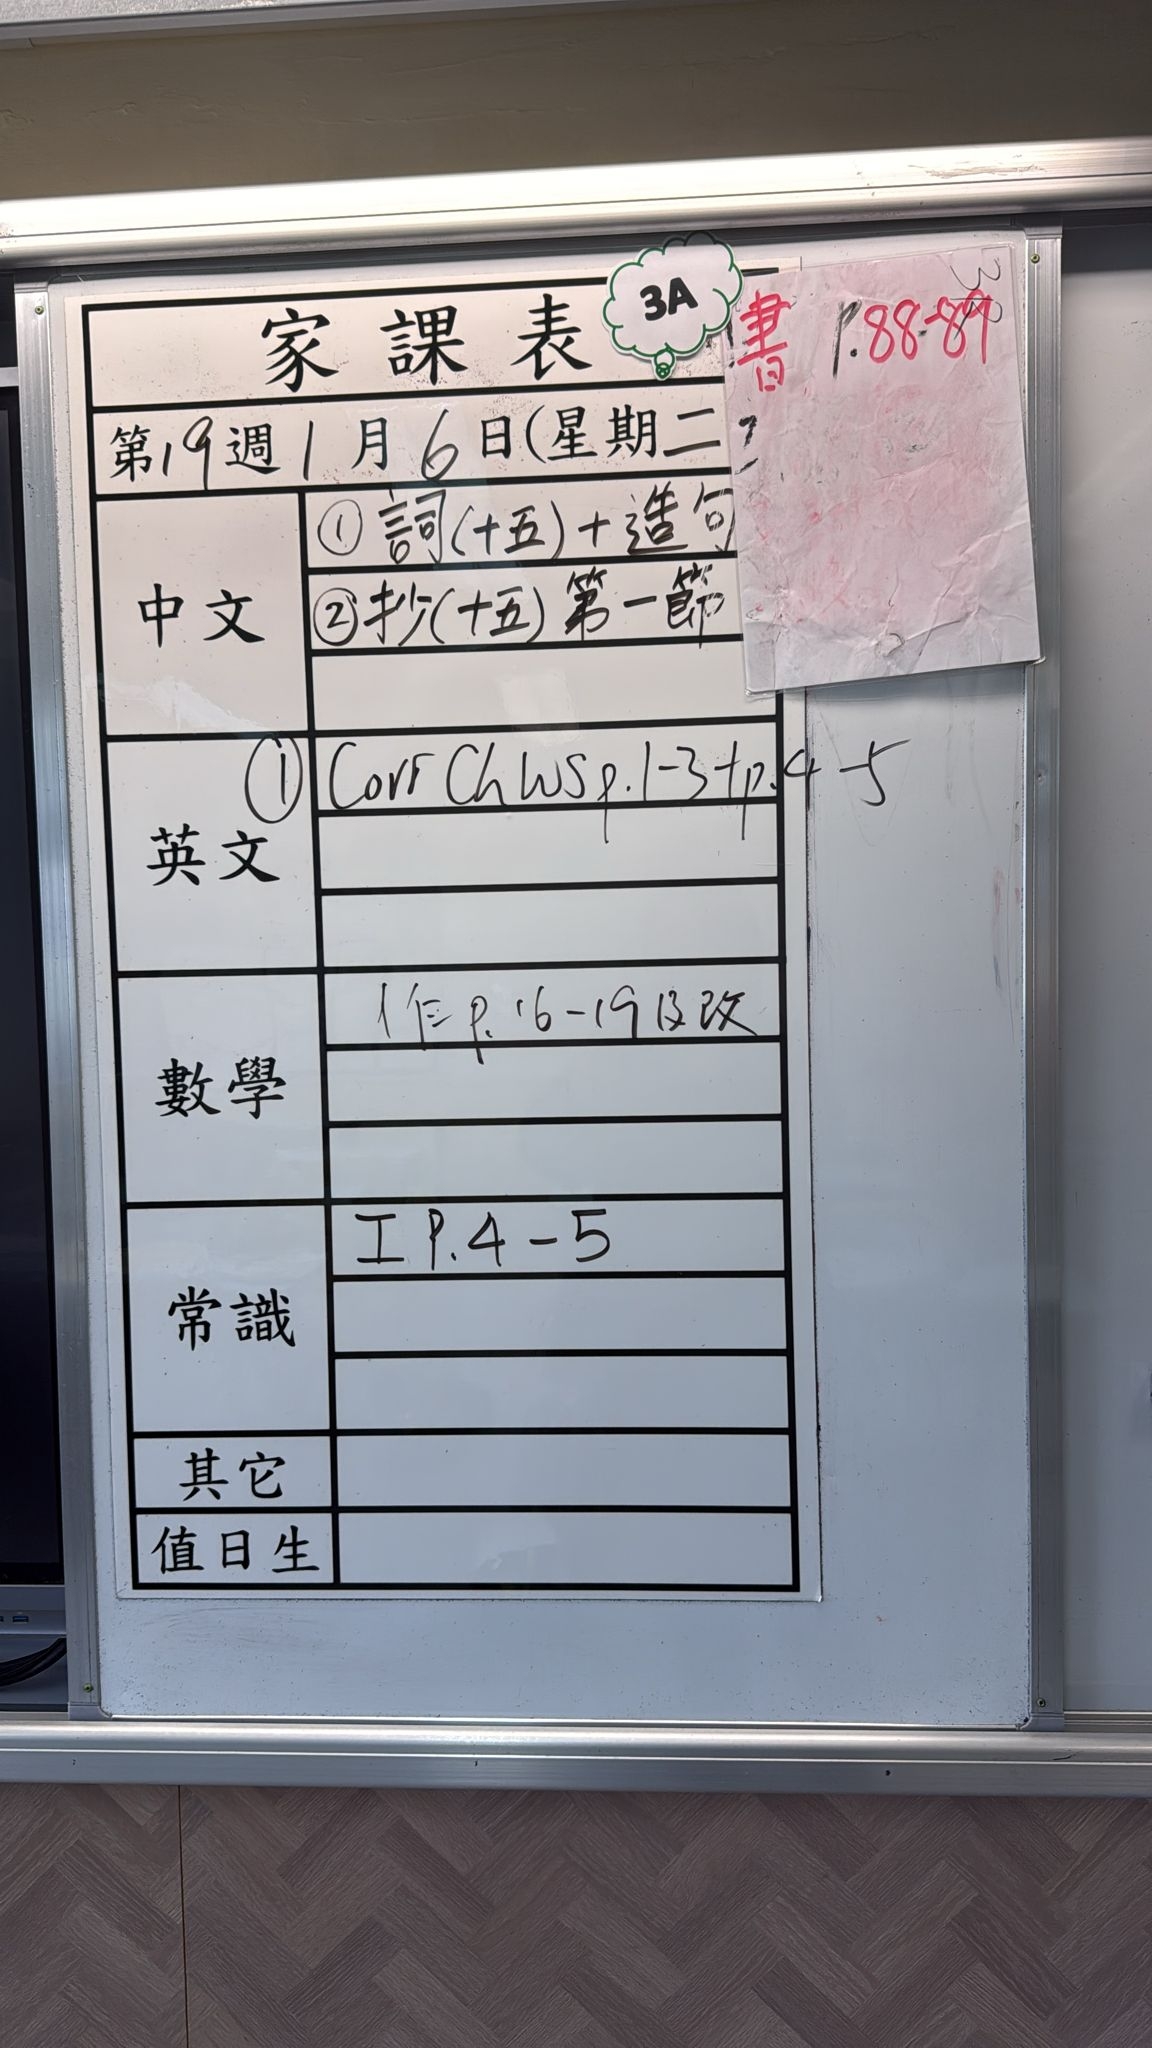 家課表
3A
書 P.88-89
第19週1月6日(星期二
中文
① 詞(十五)+造句
② 抄(十五)第一節
英文
① Corr Ch WS p.1-3 + p.4-5
數學
作 p.16-19 及改
常識
工 P.4-5
其它
值日生